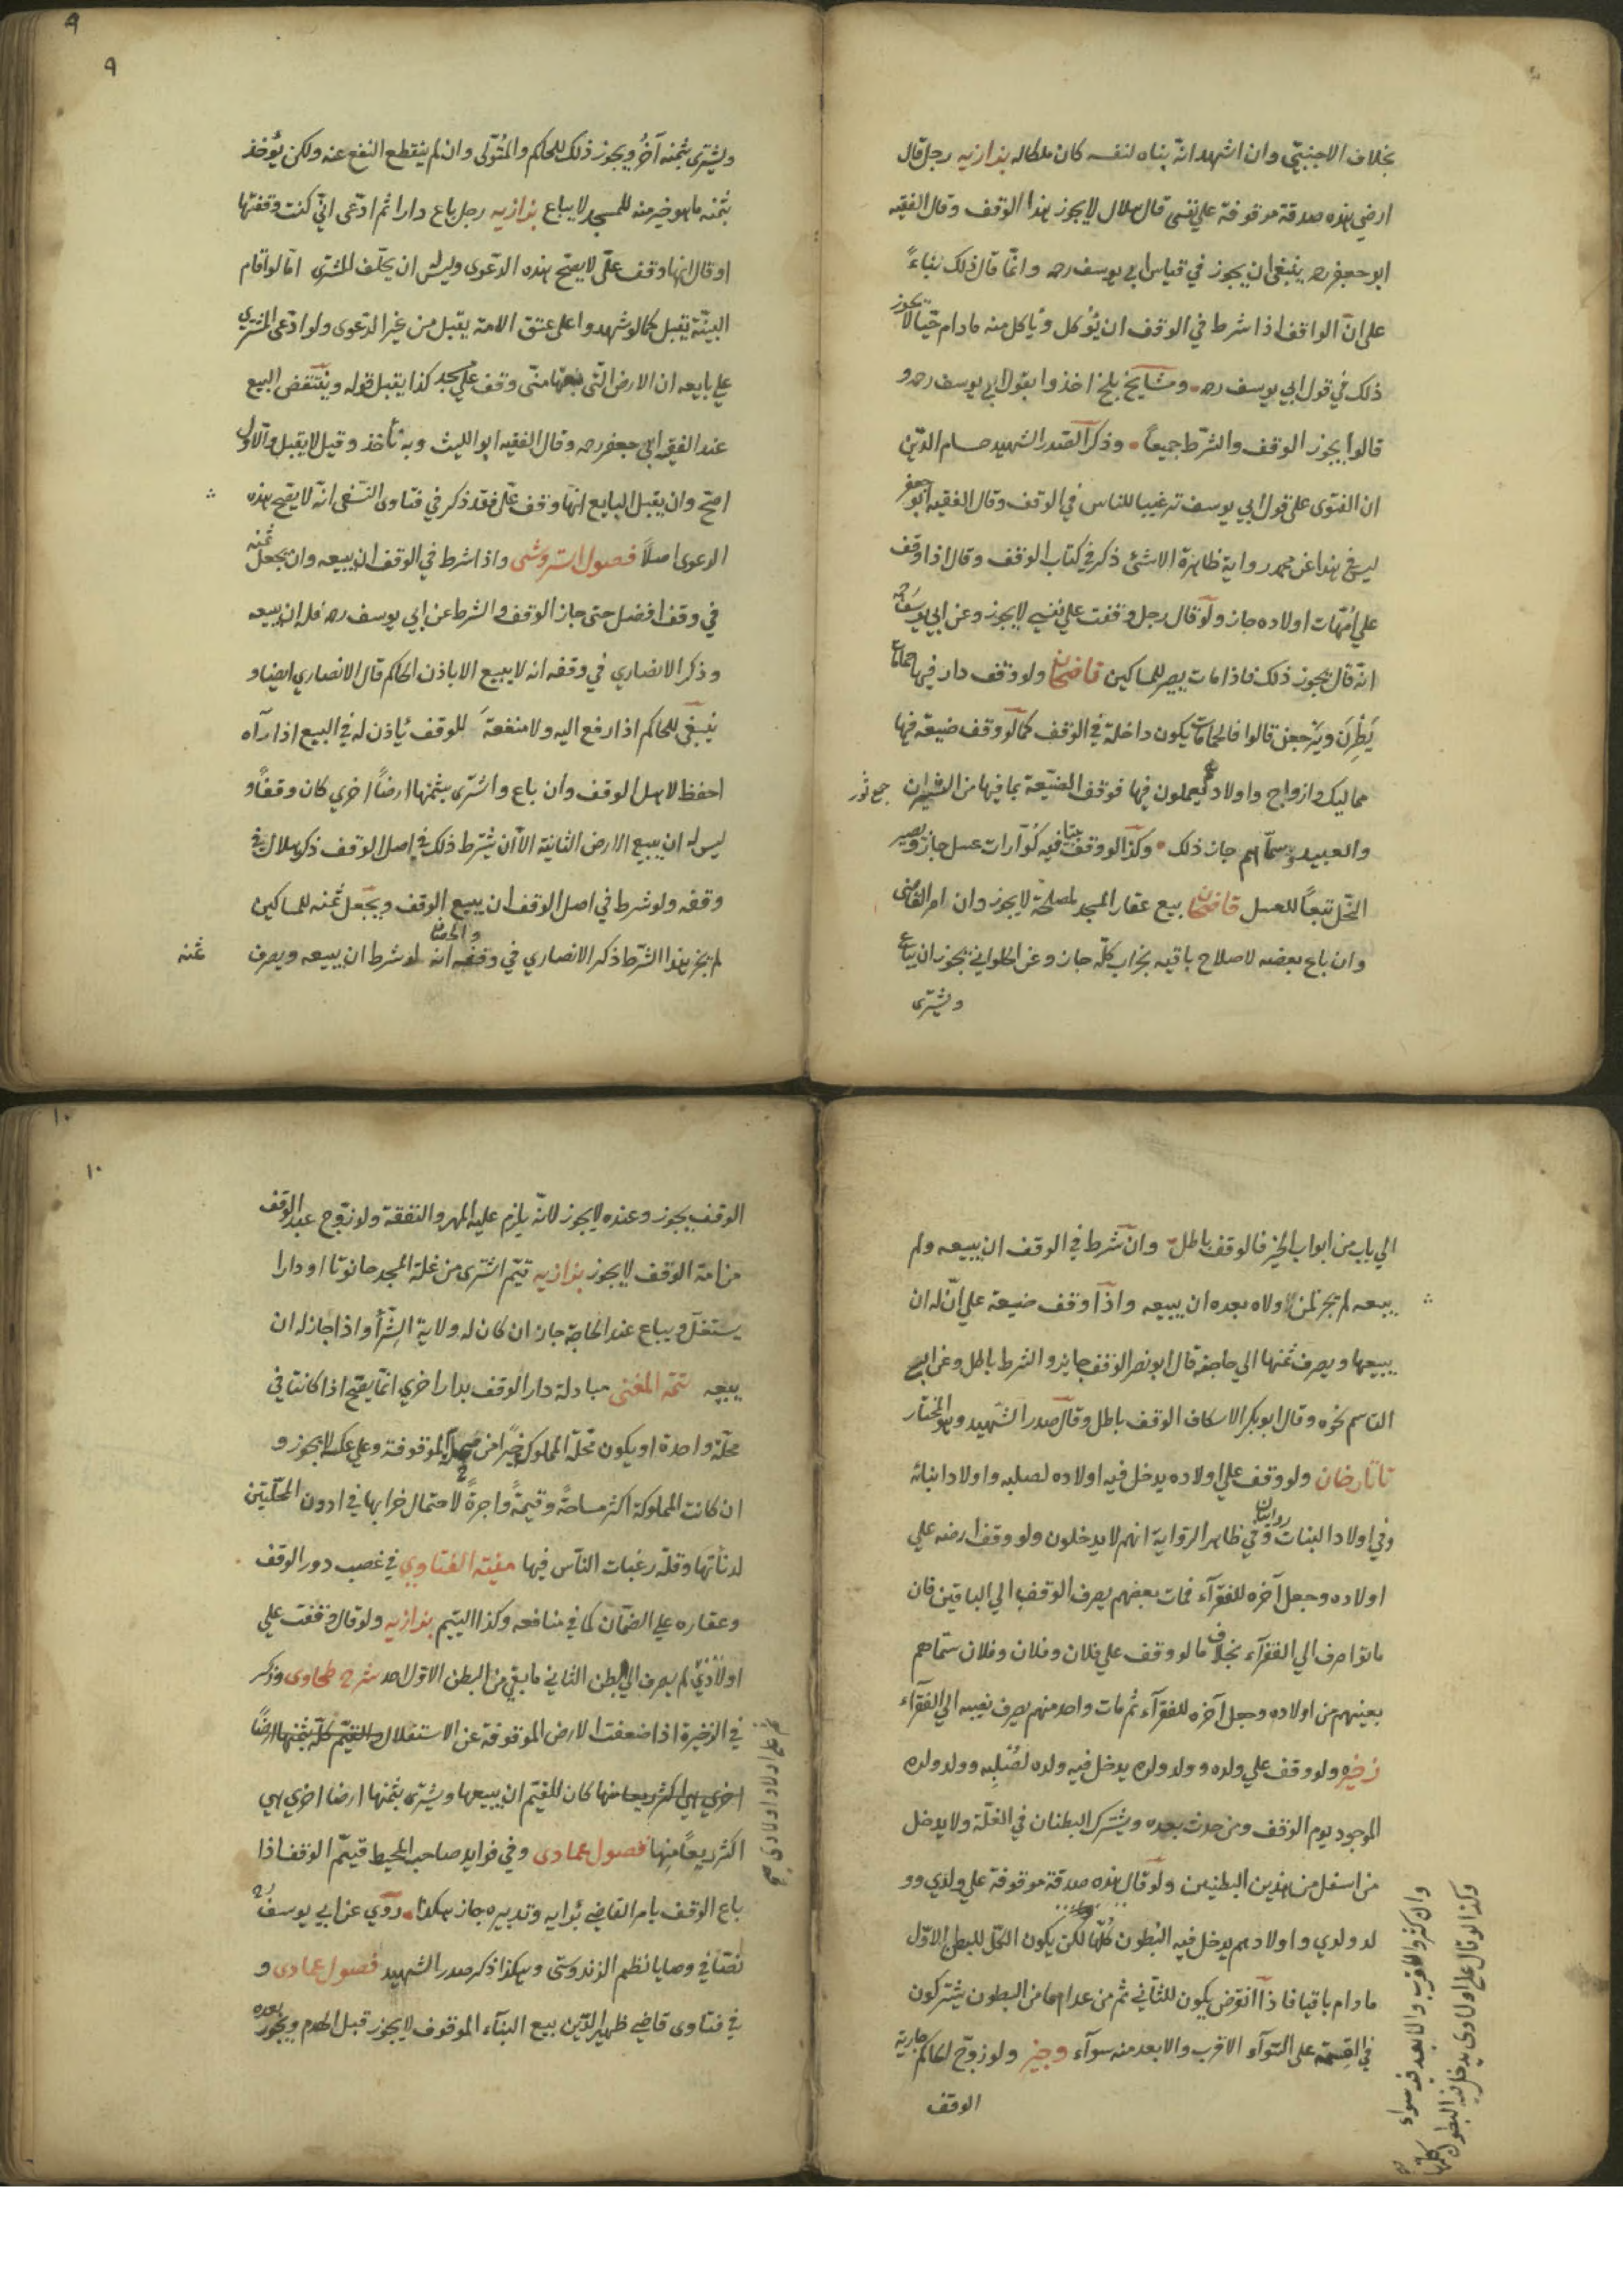 بخلاف الاجنبيّ وان اشهد انّه بناه لنفسه كان ملكا له بزازيه رجل قال
ارضي هذه صدقة موقوفة على نفسى قال هلال لا يجوز هذا الوقف وقال الفقيه
ابو جعفر رحه ينبغى ان يجوز في قياس ابي يوسف رحه وانّما قال ذلك بناءً
على انّ الواقف اذا شرط في الوقف ان يؤكل ويأكل منه مادام حيّا لا يجوز
ذلك في قول ابي يوسف رحه ومشايخ بلخ اخذوا بقول ابي يوسف رحه و
قالوا يجوز الوقف والشّرط جميعاً وذكر الصّدر الشهيد حسام الدّين
ان الفتوى على قول ابي يوسف ترغيبا للناس في الوقف وقال الفقيه ابو جعفر
ليس في هذا عن محمد رواية ظاهرة الا شئ ذكر في كتاب الوقف وقال اذا وقف
علي امّهات اولاده جاز ولو قال رجل وقفت علي نفسي لا يجوز وعن ابي يوسف رحه
انّه قال يجوز ذلك فاذا مات يصير للمساكين قاضيخان ولو وقف دار فيها حمامات
يَطِرنَ ويَرجعن قالوا فالحمامات يكون داخلة في الوقف كما لو وقف ضيعة فيها
مماليك وازواج واولاد يعملون فيها فوقف الضيّعة بما فيها من الثيران
جمع ثور
والعبيد وسمّاهم جاز ذلك وكذا لو وقف بيتا فيه كُوّارات عسل جاز ويصير
النّحل تبعاً للعسل قاضيخان بيع عقار المسجد لمصلحة لا يجوز وان امر القاضى
وان باع بعضه لاصلاح باقيه بخراب كلّه جاز وعن الحلواني يجوز ان يباع
ويشترى
٩
٩
ويشترى بثمنه آخرُ ويجوز ذلك للحاكم والمتولّى وان لم ينقطع النفع عنه ولكن يؤخذ
بثمنه ما هو خير منه للمسجد لا يباع بزازيه رجل باع دارا ثم ادّعى انّي كنت وقفتها
او قال انها وقف علىّ لا يصحّ هذه الدّعوى وليس له ان يحلّف المشترى امّا لو اقام
البيّنة يقبل كما لو شهدوا على عتق الامة يقبل من غير الدّعوى ولو ادّعى المشترى
علي بايعه ان الارض الّتى بعتها منّى وقف علي مسجد كذا يقبل قوله وينتقض البيع
عند الفقيه ابي جعفر رحه وقال الفقيه ابو الليث وبه نأخذ وقيل لا يقبل والاوّل
اصحّ وان يقبل البايع انّها وقف علىّ فقد ذكر في فتاوى النّسفى انّه لا يصّح هذه
الدعوى اصلاً فصول استروشنى واذا شرط في الوقف ان يبيعه وان يجعل ثمنه
في وقف افضل حتى جاز الوقف والشرط عن ابي يوسف رحه فله ان يبيعه
وذكر الانصاري في وقفه انه لا يبيع الا باذن الحاكم قال الانصاري ايضا و
ينبغى للحاكم اذا رفع اليه ولا منفعةَ للوقف يأذن له في البيع اذا رآه
احفظ لاهل الوقف وان باع واشترى بثمنها ارضاً اخري كان وقفاً و
ليس له ان يبيع الارض الثانية الّا ان يشترط ذلك في اصل الوقف ذكر هلال في
وقفه ولو شرط في اصل الوقف ان يبيع الوقف ويجعل ثمنه للمساكين
لم يجز هذا الشّرط ذكر الانصاري في وقفه انه لو شرط ان يبيعه ويصرف
ثمنه
الي باب من ابواب الخير فالوقف باطل وان شرط في الوقف ان يبيعه ولم
يبيعه لم يجز لمن ولاه بعده ان يبيعه واذا وقف ضيعة علي انّ له ان
يبيعها ويصرف ثمنها الي حاجته قال ابو نصر الوقف جايز والشرط باطل وعن ابي
القاسم نحوه وقال ابو بكر الاسكاف الوقف باطل وقال صدر الشهيد وهو المختار
تاتارخان ولو وقف علي اولاده يدخل فيه اولاده لصلبه واولاد ابنائه
وفي اولاد البنات روايتان وفي ظاهر الرّواية انهم لا يدخلون ولو وقف ارضه علي
اولاده وجعل آخره للفقرآء فمات بعضهم يصرف الوقف الي الباقين فان
ماتوا صرف الي الفقرآء بخلاف ما لو وقف علي فلان وفلان وفلان سمّاهم
بعينهم من اولاده وجعل آخره للفقرآء ثم مات واحد منهم يصرف نصيبه الي الفقرآء
ذخيره ولو وقف علي ولده وولد ولده يدخل فيه ولده لصُلبِه وولد ولده
الموجود يوم الوقف ومن حدث بعده ويشترك البطنان في الغلّة ولا يدخل
من اسفل من هذين البطنين ولو قال هذه صدقة موقوفة علي ولدي وو
لد ولدي واولادهم يدخل فيه البُطون كُلّها لكن يكون الكلّ للبطن الاوّل
مادام باقيا فاذا انقرض يكون للثّاني ثم من عداهما من البطون يشتركون
في القسمة على السّوآء الاقرب والابعد منه سوآء وجيز ولو زوّج الحاكم جارية
الوقف
وكذا لو قال علي اولادي يدخل فيه البطون كلها
وان كثر والاقرب والابعد فيه سواء
١٠
١٠
الوقف يجوز وعنده لا يجوز لانّه يلزم عليه المهر والنفقة ولو زوّج عبد الوقف
من امة الوقف لا يجوز بزازيه قيّم اشترى من غلة المسجد حانوتا او دارا
يستغلّ ويباع عند الحاجة جاز ان كان له ولاية الشّرأ واذا جاز له ان
يبيعه تتمّة المغنى مبادلة دار الوقف بدار اخري انّما يصّح اذا كانتا في
محلّة واحدة او يكون محلّة المملوك خيراً من محلة الموقوفة وعلي عكسه لا يجوز و
ان كانت المملوكة اكثر مساحةً وقيمةً واجرةً لاحتمال خرابها في ادون المحلّتين
لدنائتها وقلّة رغبات النّاس فيها منية الفتاوي في غصب دور الوقف
وعقاره علي الضّمان كما في منافعه وكذا اليتيم بزازيه ولو قال وقفت علي
اولادي لم يصرف الي البطن الثاني ما بقي من البطن الاوّل احد شرح طحاوى وذكر
في الذخيرة اذا ضعفت الارض الموقوفة عن الاستغلال والقيّم كلّه بثمنها ارضاً
اخري هي اكثر ريعا منها كان للقيّم ان يبيعها ويشترى بثمنها ارضا اخري هي
اكثر ريعاً منها فصول عمادى وفي فوايد صاحب المحيط قيّم الوقف اذا
باع الوقف بامر القاضي برايه وتدبيره جاز هكذا روي عن ابي يوسف رح
نصّا في وصايا نظم الزندوستى وهكذا ذكر صدر الشهيد فصول عمادى و
في فتاوى قاضي ظهير الدّين بيع البنآء الموقوف لا يجوز قبل الهدم ويجوز بعده